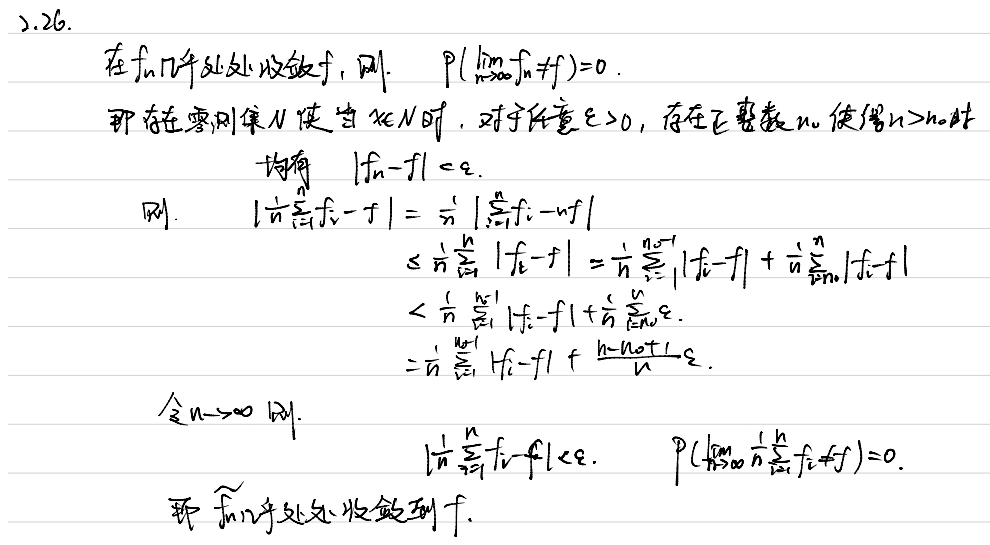 2.26.
在 fn 几乎处处收敛 f, 则. P(lim_{n→∞} fn ≠ f) = 0.
即存在零测集 N 使当 x∈N 时, 对于任意 ε>0, 存在正整数 n₀ 使得 n>n₀ 时
均有 |fn - f| < ε.
则. |1/n Σ_{i=1}^{n} fi - f| = 1/n |Σ_{i=1}^{n} fi - nf|
≤ 1/n Σ_{i=1}^{n} |fi - f| = 1/n Σ_{i=1}^{n₀-1} |fi - f| + 1/n Σ_{i=n₀}^{n} |fi - f|
< 1/n Σ_{i=1}^{n₀-1} |fi - f| + 1/n Σ_{i=n₀}^{n} ε.
= 1/n Σ_{i=1}^{n₀-1} |fi - f| + (n-n₀+1)/n ε.
令 n→∞ 则.
|1/n Σ_{i=1}^{n} fi - f| < ε. P(lim_{n→∞} 1/n Σ_{i=1}^{n} fi ≠ f) = 0.
即 f̃n 几乎处处收敛到 f.